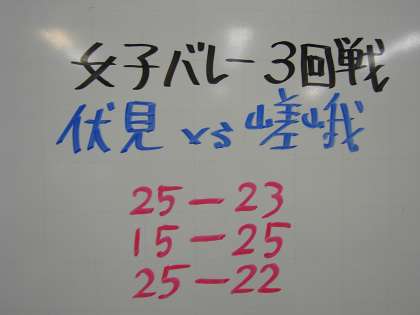 女子バレー3回戦
伏見 vs 嵯峨
25-23
15-25
25-22